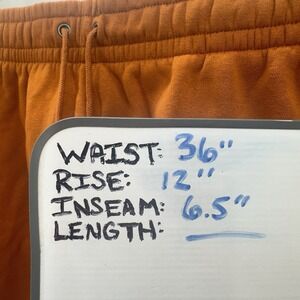 WAIST: 36"
RISE: 12"
INSEAM: 6.5"
LENGTH: